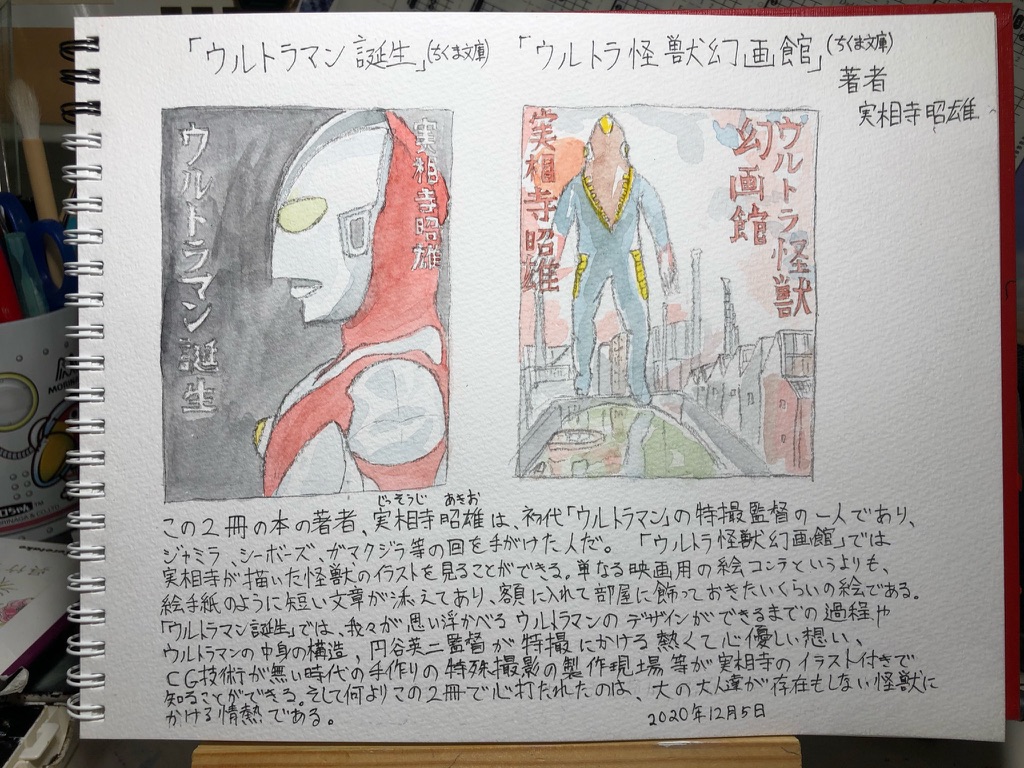 「ウルトラマン誕生」(ちくま文庫) 「ウルトラ怪獣幻画館」(ちくま文庫)
著者
実相寺昭雄
ウルトラマン誕生
実相寺昭雄
実相寺昭雄
ウルトラ怪獣
幻画館
じっそうじ あきお
この2冊の本の著者、実相寺昭雄は、初代「ウルトラマン」の特撮監督の一人であり、
ジャミラ、シーボーズ、ガマクジラ等の回を手がけた人だ。「ウルトラ怪獣幻画館」では
実相寺が描いた怪獣のイラストを見ることができる。単なる映画用の絵コンテというよりも、
絵手紙のように短い文章が添えてあり、額に入れて部屋に飾っておきたいくらいの絵である。
「ウルトラマン誕生」では、我々が思い浮かべるウルトラマンのデザインができるまでの過程や
ウルトラマンの中身の構造、円谷英二監督が特撮にかける熱くて心優しい想い、
CG技術が無い時代の手作りの特殊撮影の製作現場等が実相寺のイラスト付きで
知ることができる。そして何よりこの2冊で心打たれたのは、大の大人達が存在もしない怪獣に
かける情熱である。
2020年12月5日